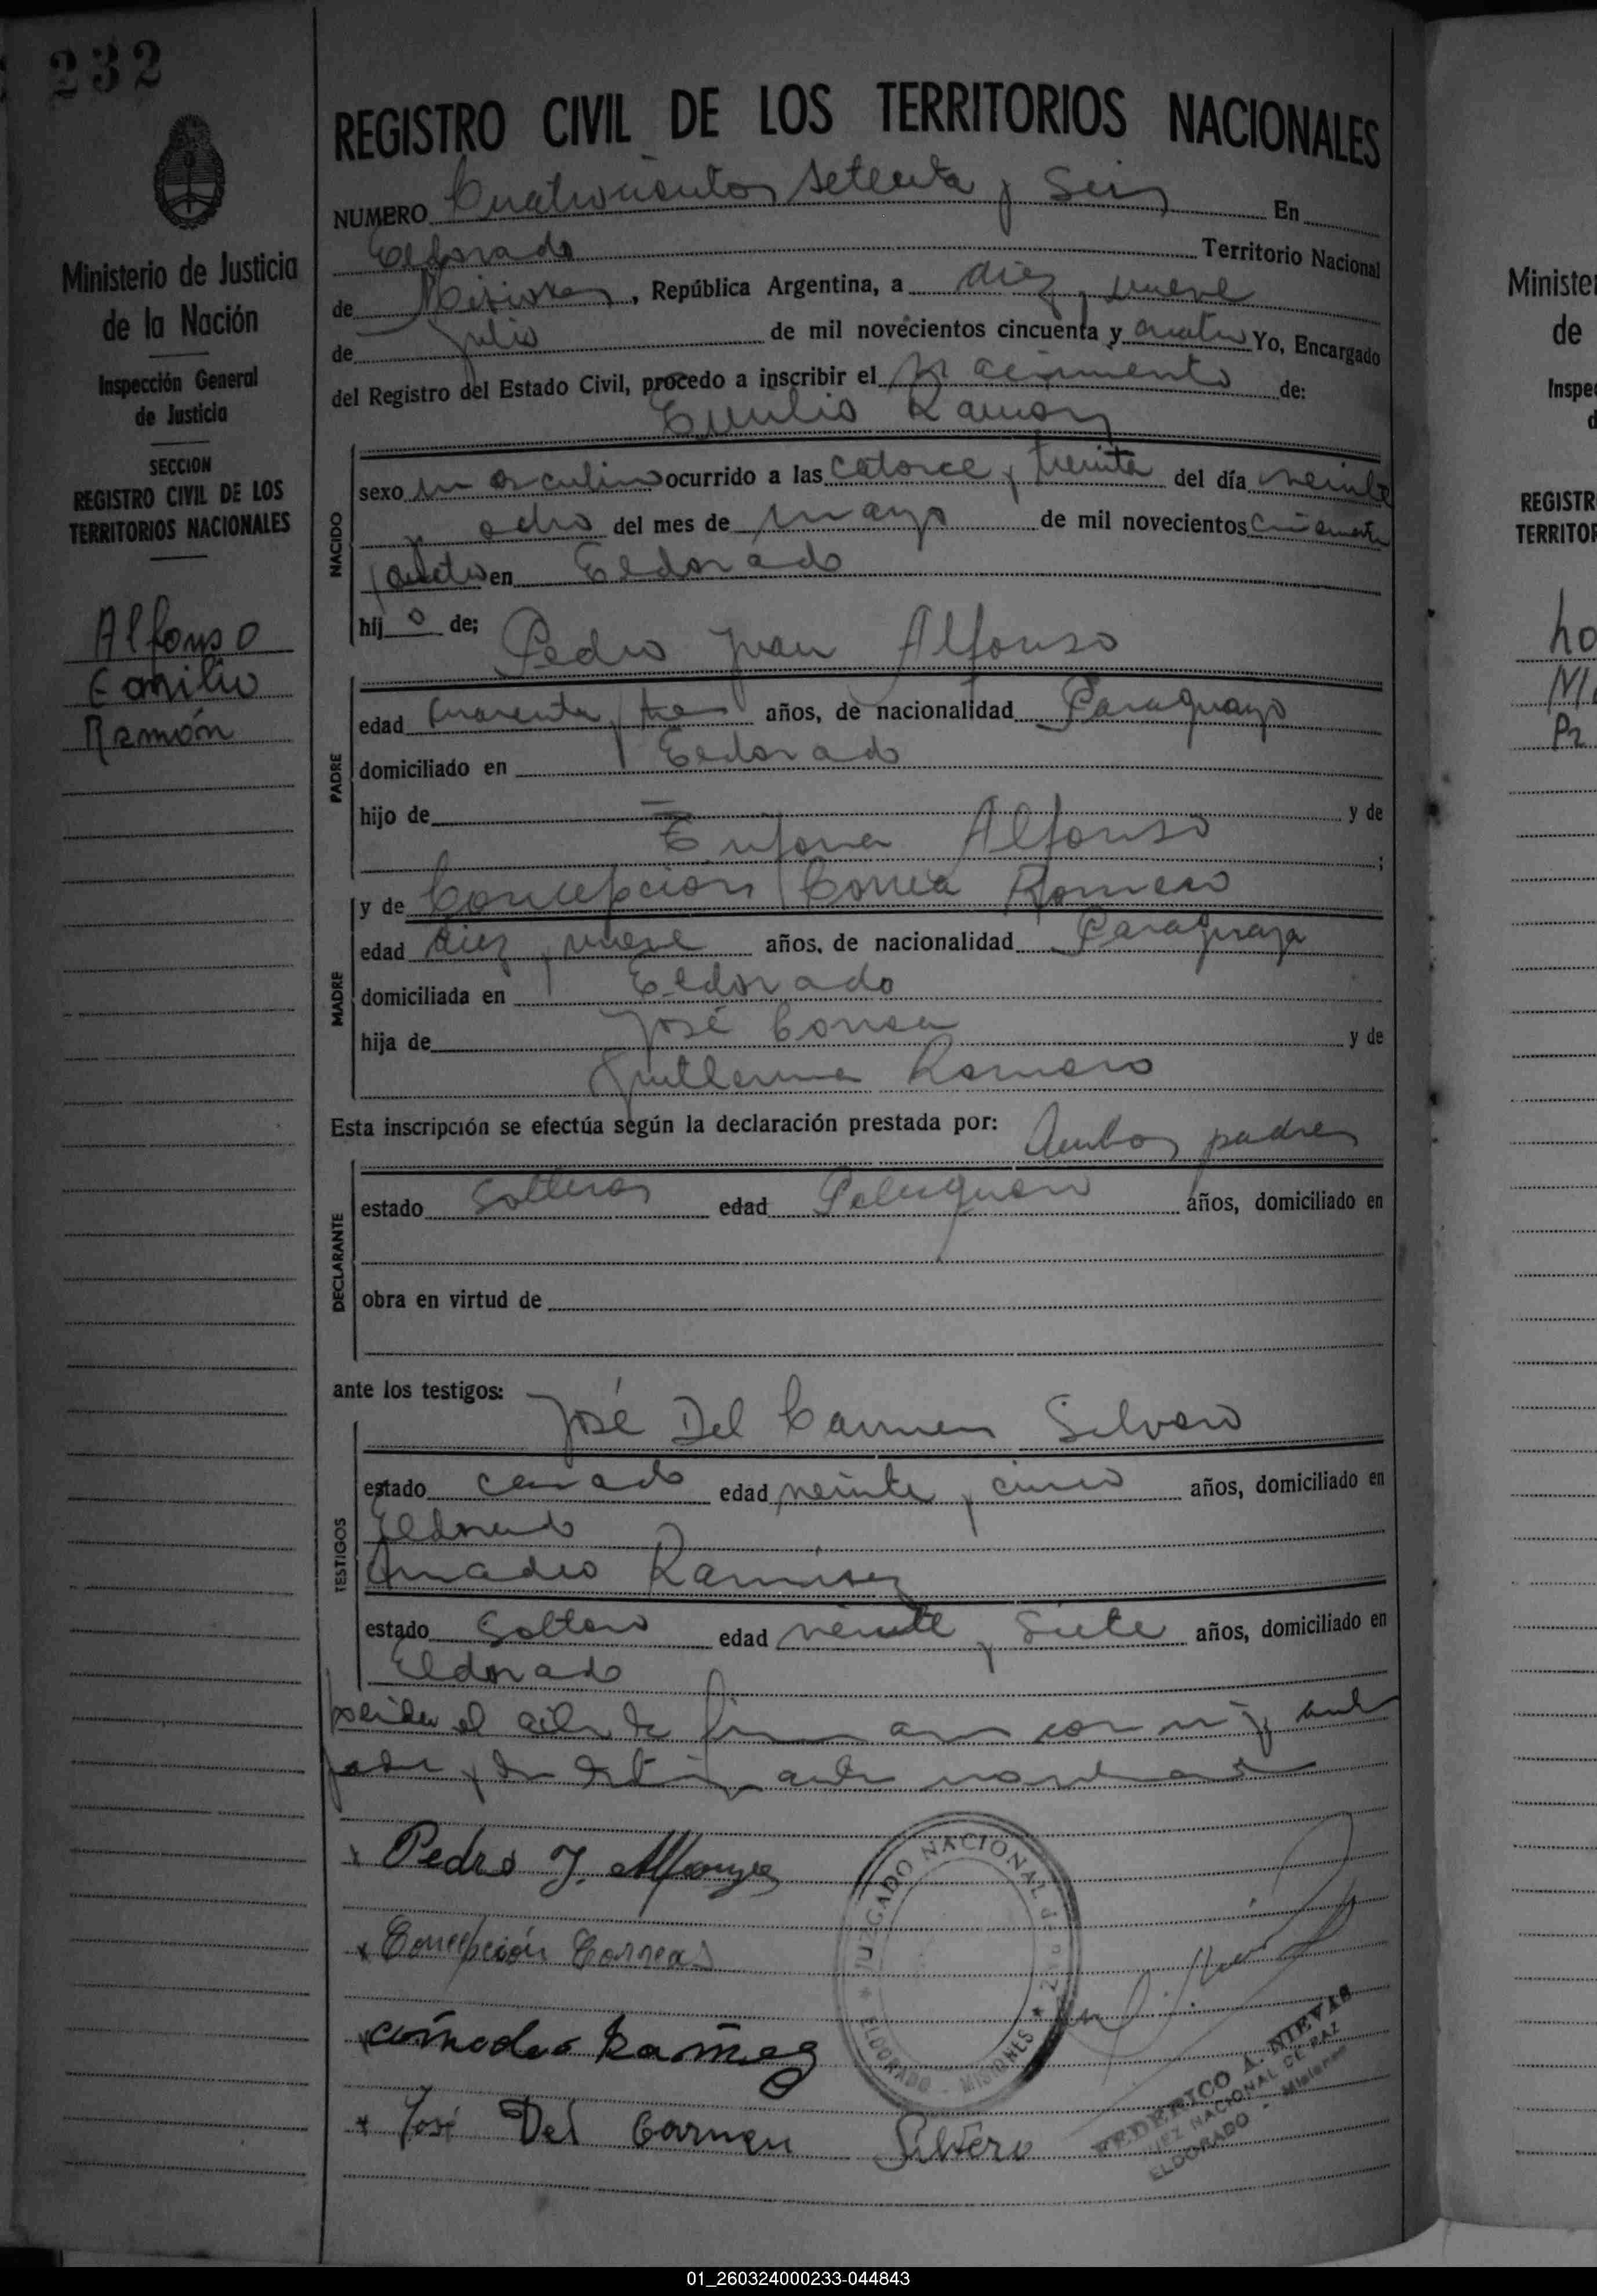 232
Ministerio de Justicia
de la Nación
Inspección General
de Justicia
SECCION
REGISTRO CIVIL DE LOS
TERRITORIOS NACIONALES
Alfonso
Emilio
Ramón
REGISTRO CIVIL DE LOS TERRITORIOS NACIONALES
NUMERO Cuatrocientos setenta y Seis En
Eldorado Territorio Nacional
de Misiones, República Argentina, a diez y nueve
de Julio de mil novecientos cincuenta y cuatro Yo, Encargado
del Registro del Estado Civil, procedo a inscribir el Nacimiento de:
Emilio Ramon
NACIDO
sexo masculino ocurrido a las catorce y treinta del día veinte
y ocho del mes de mayo de mil novecientos cincuenta
y cuatro en Eldorado
hij o de;
Pedro Juan Alfonso
PADRE
edad cuarenta y tres años, de nacionalidad Paraguayo
domiciliado en Eldorado
hijo de — y de
Alfonso ;
y de Concepcion Correa Romero
MADRE
edad diez y nueve años, de nacionalidad Paraguaya
domiciliada en Eldorado
hija de José Correa y de
Guillerma Romero
Esta inscripción se efectúa según la declaración prestada por: Ambos padres
DECLARANTE
estado Solteros edad Peluquero años, domiciliado en
obra en virtud de
ante los testigos:
José Del Carmen Silvero
TESTIGOS
estado casado edad veinte y cinco años, domiciliado en
Eldorado
Amadeo Ramirez
estado Soltero edad veinte y siete años, domiciliado en
Eldorado
el acta la firman
Pedro J. Alfonzo
JUZGADO NACIONAL DE PAZ
ELDORADO - MISIONES
Concepción Correas
Amadeo Ramirez
José Del Carmen Silvero
FEDERICO A. NIEVAS
JUEZ NACIONAL DE PAZ
ELDORADO - Misiones
Ministe
de
Inspe
d
REGISTR
TERRITOR
01_260324000233-044843